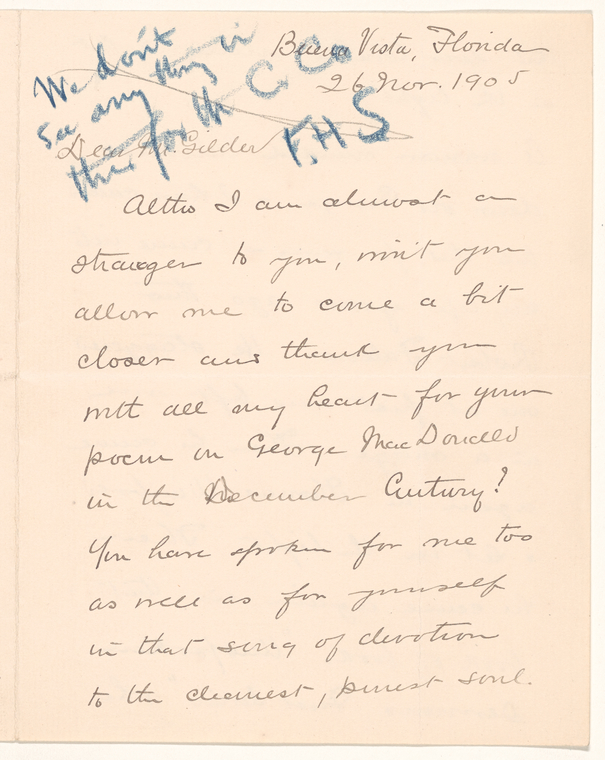 We don't
see any thing in
this for the C. Co
F.H.S
Buena Vista, Florida
26 Nov. 1905
Dear Mr. Gilder
Altho I am almost a
stranger to you, won't you
allow me to come a bit
closer and thank you
with all my heart for your
poem on George MacDonald
in the December Century?
You have spoken for me too
as well as for yourself
in that song of devotion
to the clearest, purest soul.